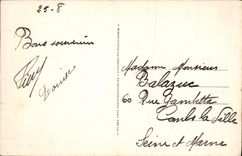 25-8
Bons souvenirs
Louise
Madame Monsieur
Balazuc
60 Rue Gambetta
Combs la Ville
Seine et Marne